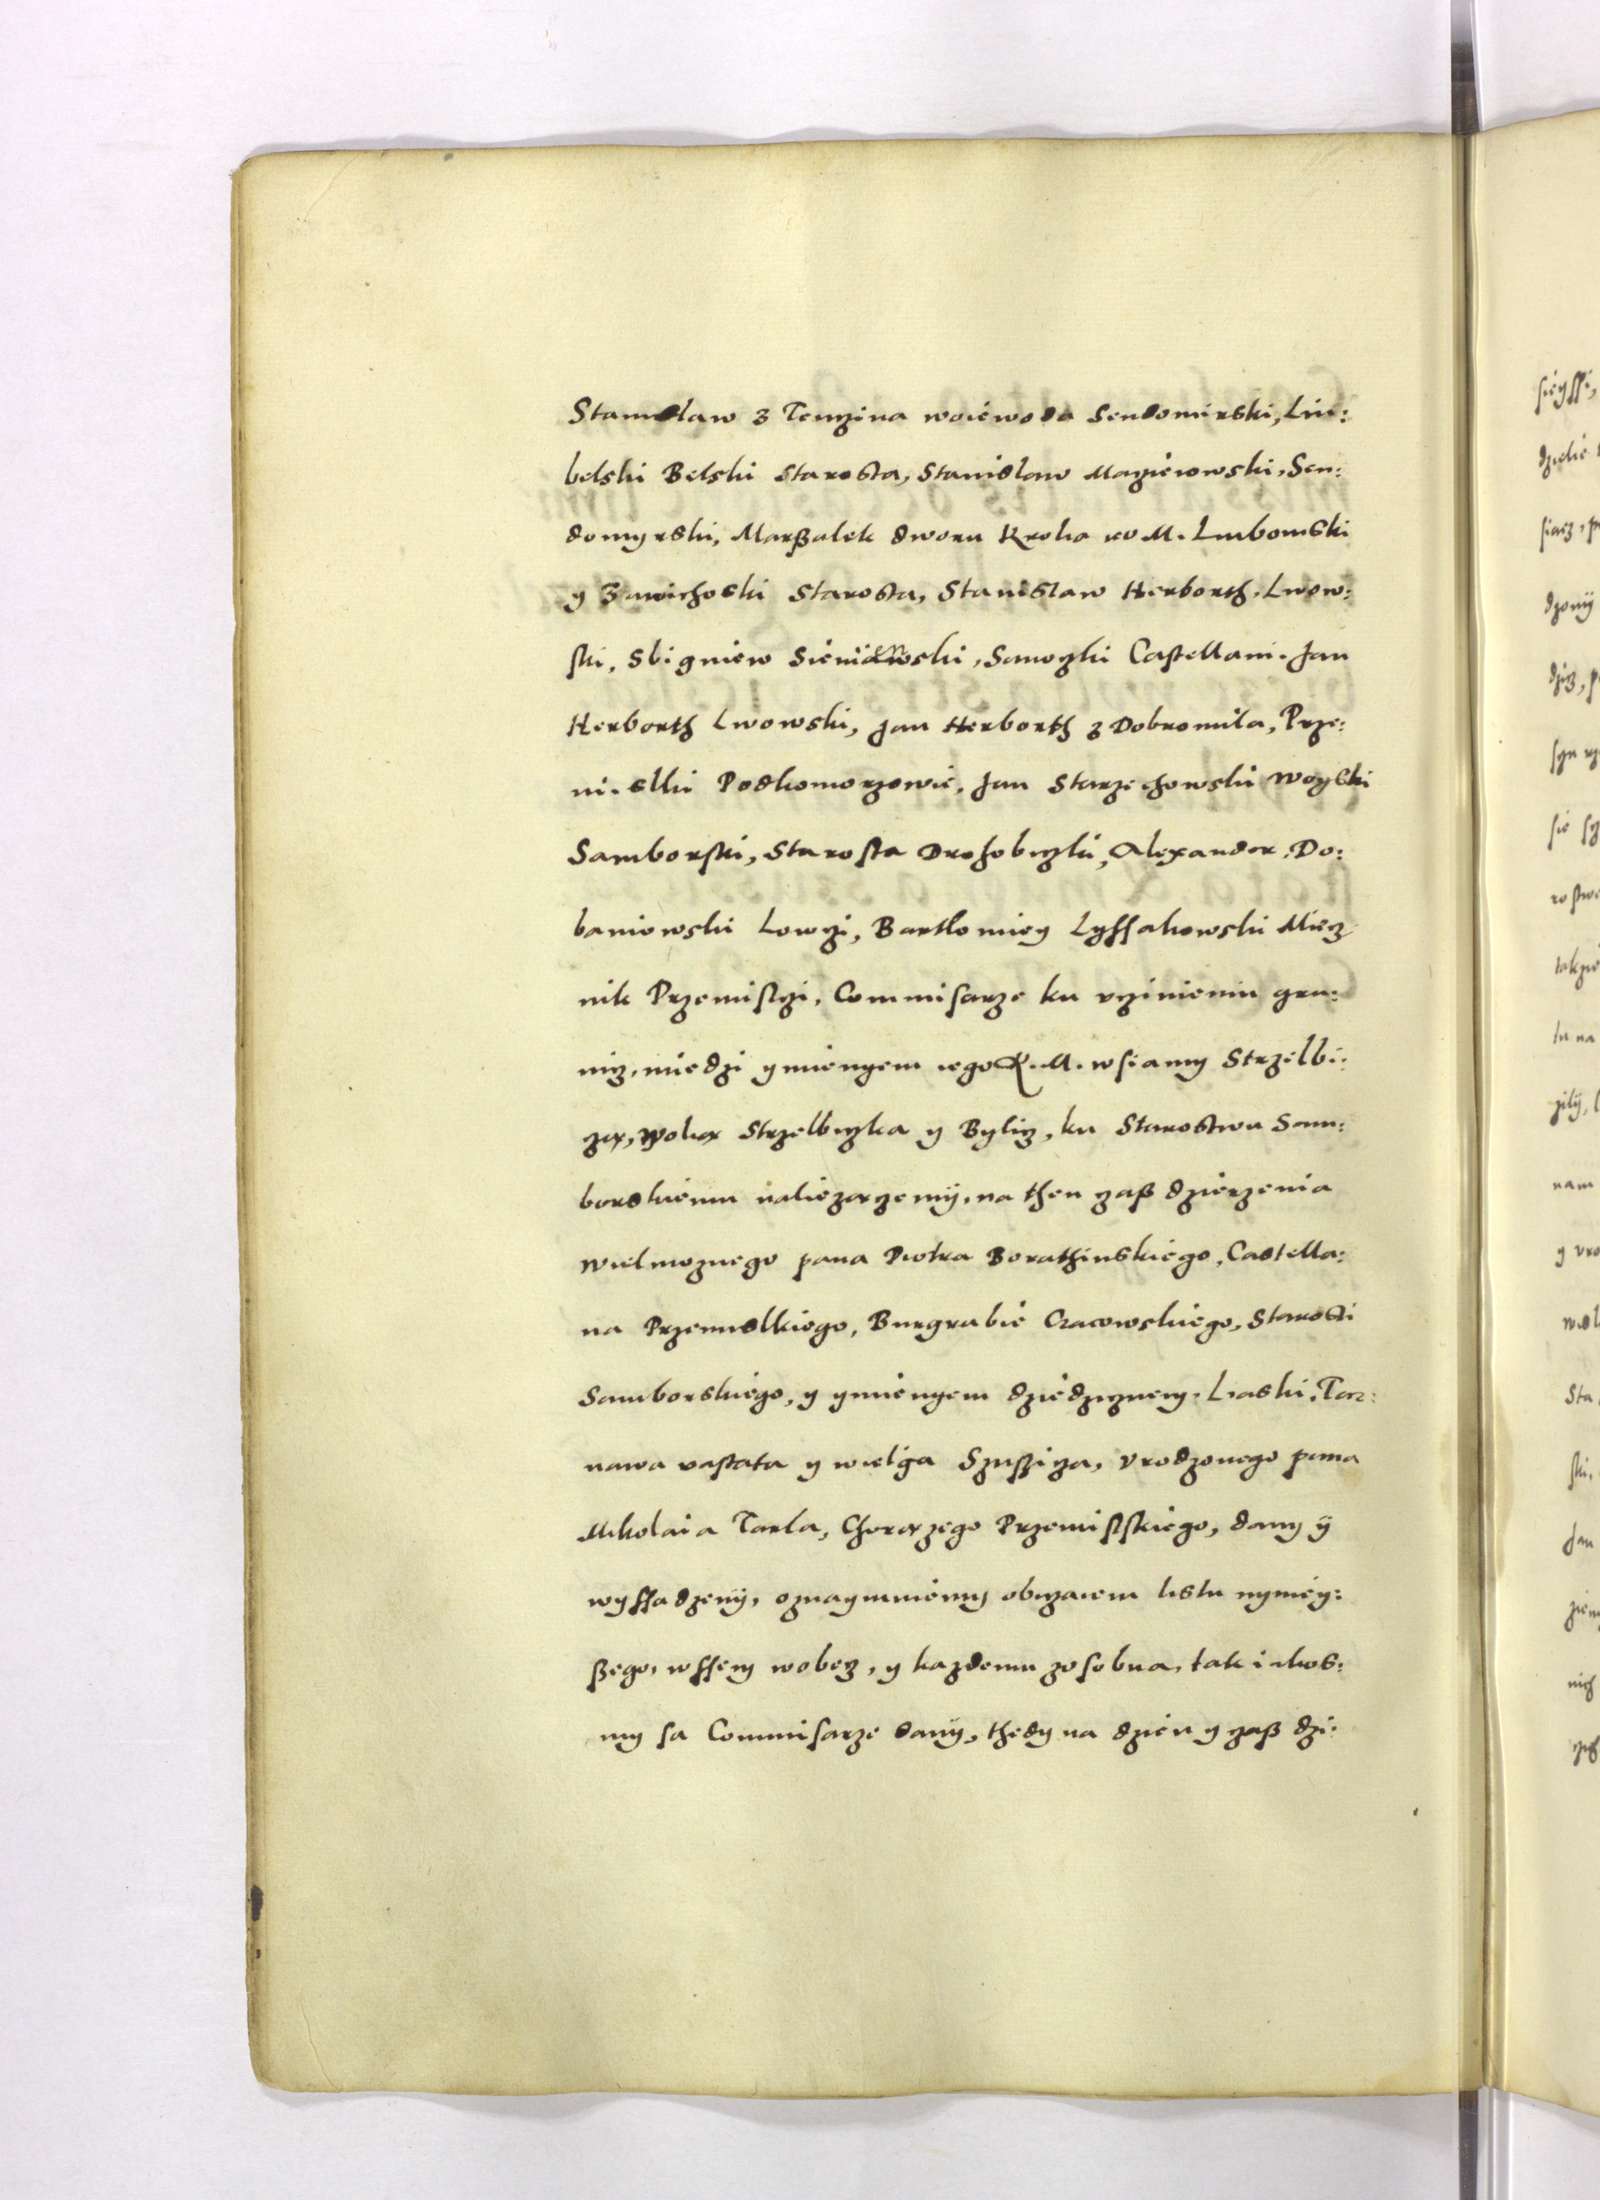 Stanislaw z Tenczina woiewoda Sendomirski, Liu:
belski Belski Starosta, Stanislaw Macziewowski, Sen:
domyrski, Marßalek dworu Krola ieo M. Liubomski
y Zawichoski Starosta, Stanislaw Herborth, Lwow:
ski, Sbigniew Sieniawski, Sanoczki Castellani. Jan
Herborth Lwowski, Jan Herborth z Dobromila, Prze:
mi.slki Podkomorzowie, Jan Starzechowski Woyski
Samborski, Starosta Drohobiczki, Alexander, Do:
baniowski Lowczi, Bartlomiey Lyssakowski Miecz
nik Przemisczi, Commisarze ku vczinieniu gra:
nicz, miedzi ymienyem iego K. M. wsiamy Strzelbi:
cza, Wolia Strzelbiczka y Bylicz, ku Starostwu Sam:
borskiemu naliezaczemÿ, na then czaß dzierzenia
Wielmoznego pana Piotra Borathinskiego, Castella:
na Przemislkiego, Burgrabie Cracowskiego, Starosti
Samborskiego, y ymienyem dziedzicznem, Liaski, Tar:
nawa vastata y wielga Szussicza, Vrodzonego pana
Mikolaia Tarla, Chorazego Przemisskiego, dany ÿ
wyssadzenÿ, oznaymuiemy obiczaiem listu nyniey:
ßego, wssem wobecz, y kazdemu zosobna, tak iakos:
my sa Commisarze danÿ, thedy na dzien y czaß dzi: